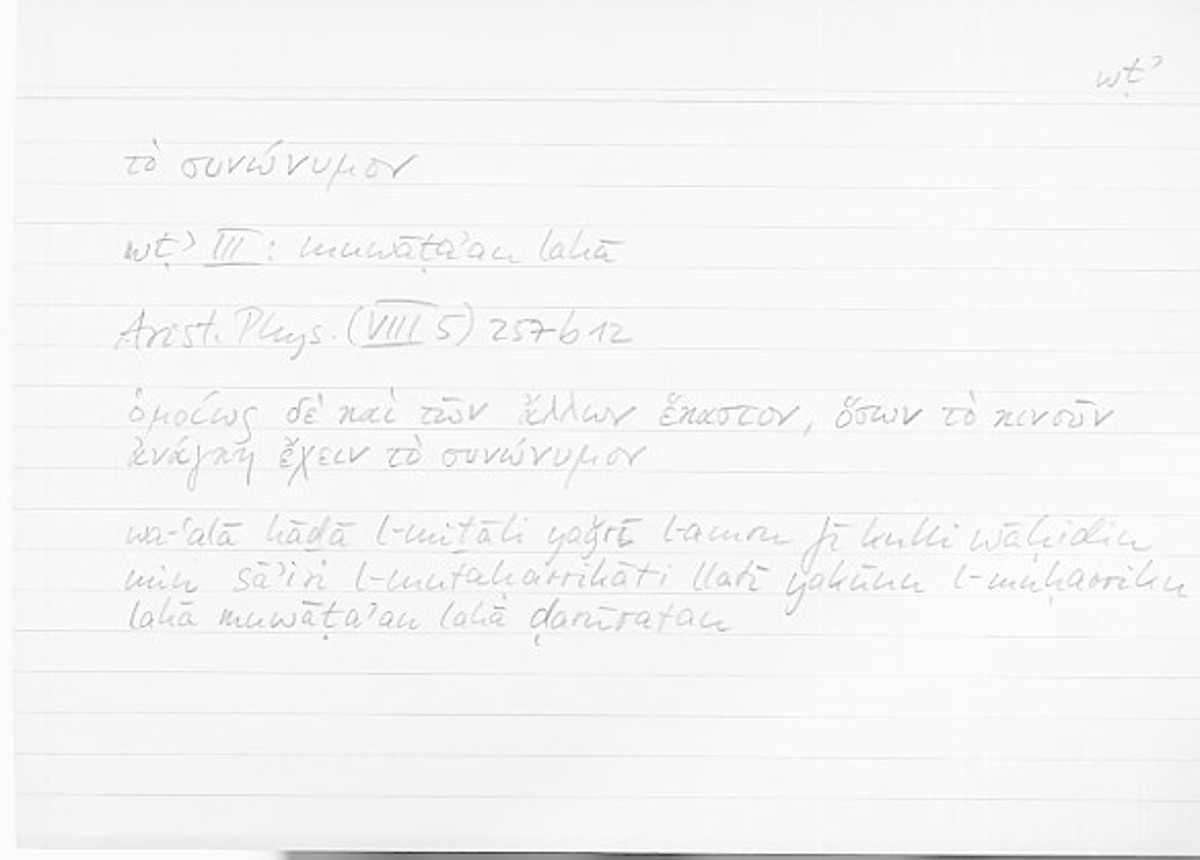 wṭʾ
τὸ συνώνυμον
wṭʾ III: muwāṭaʾan lahā
Arist. Phys. (VIII 5) 257b12
ὁμοίως δὲ καὶ τῶν ἄλλων ἕκαστον, ὅσων τὸ κινοῦν
ἀνάγκη ἔχειν τὸ συνώνυμον
wa-ʿalā hāḏā l-miṯāli yaǧrī l-amru fī kulli wāḥidin
min sāʾiri l-mutaḥarrikāti llatī yakūnu l-muḥarriku
lahā muwāṭaʾan lahā ḍarūratan